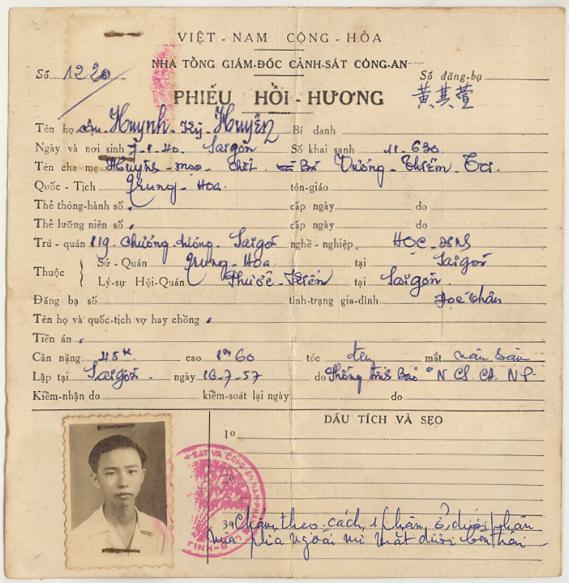 VIỆT-NAM CỘNG-HÒA
NHA TỔNG GIÁM-ĐỐC CẢNH-SÁT CÔNG-AN
Số 1220 Số đăng-bạ
PHIẾU HỒI-HƯƠNG 黄其萱
Tên họ Huỳnh-Kỳ-Huyên Bí danh
Ngày và nơi sinh 7-1-40 Saigon Số khai sanh 11.630
Tên cha mẹ Huỳnh Bá Vương-Thiêm
Quốc-Tịch Trung-Hoa tôn-giáo
Thẻ thông-hành số cấp ngày do
Thẻ lưỡng niên số cấp ngày do
Trú-quán 119 Chương Dương-Saigon nghề-nghiệp HỌC-SINH
Thuộc
Sứ-Quán Trung-Hoa tại Saigon
Lý-sự Hội-Quán Phước-Kiến tại Saigon
Đăng bạ số tình-trạng gia-đình Độc thân
Tên họ và quốc-tịch vợ hay chồng
Tiền án
Cân nặng 45k cao 1m60 tóc đen mắt nâu
Lập tại Saigon ngày 16-7-57 do
Kiểm-nhận do kiểm-soát lại ngày do
DẤU TÍCH VÀ SẸO
1o
2o
3o Chấm theo cách ở dưới phần
phía ngoài mi mắt dưới bên